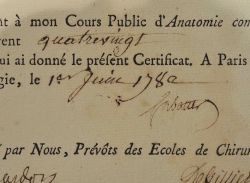 nt à mon Cours Public d'Anatomie com
rent quatrevingt
ui ai donné le présent Certificat. A Paris
gie, le 1er Juin 178
é par Nous, Prévôts des Ecoles de Chirur